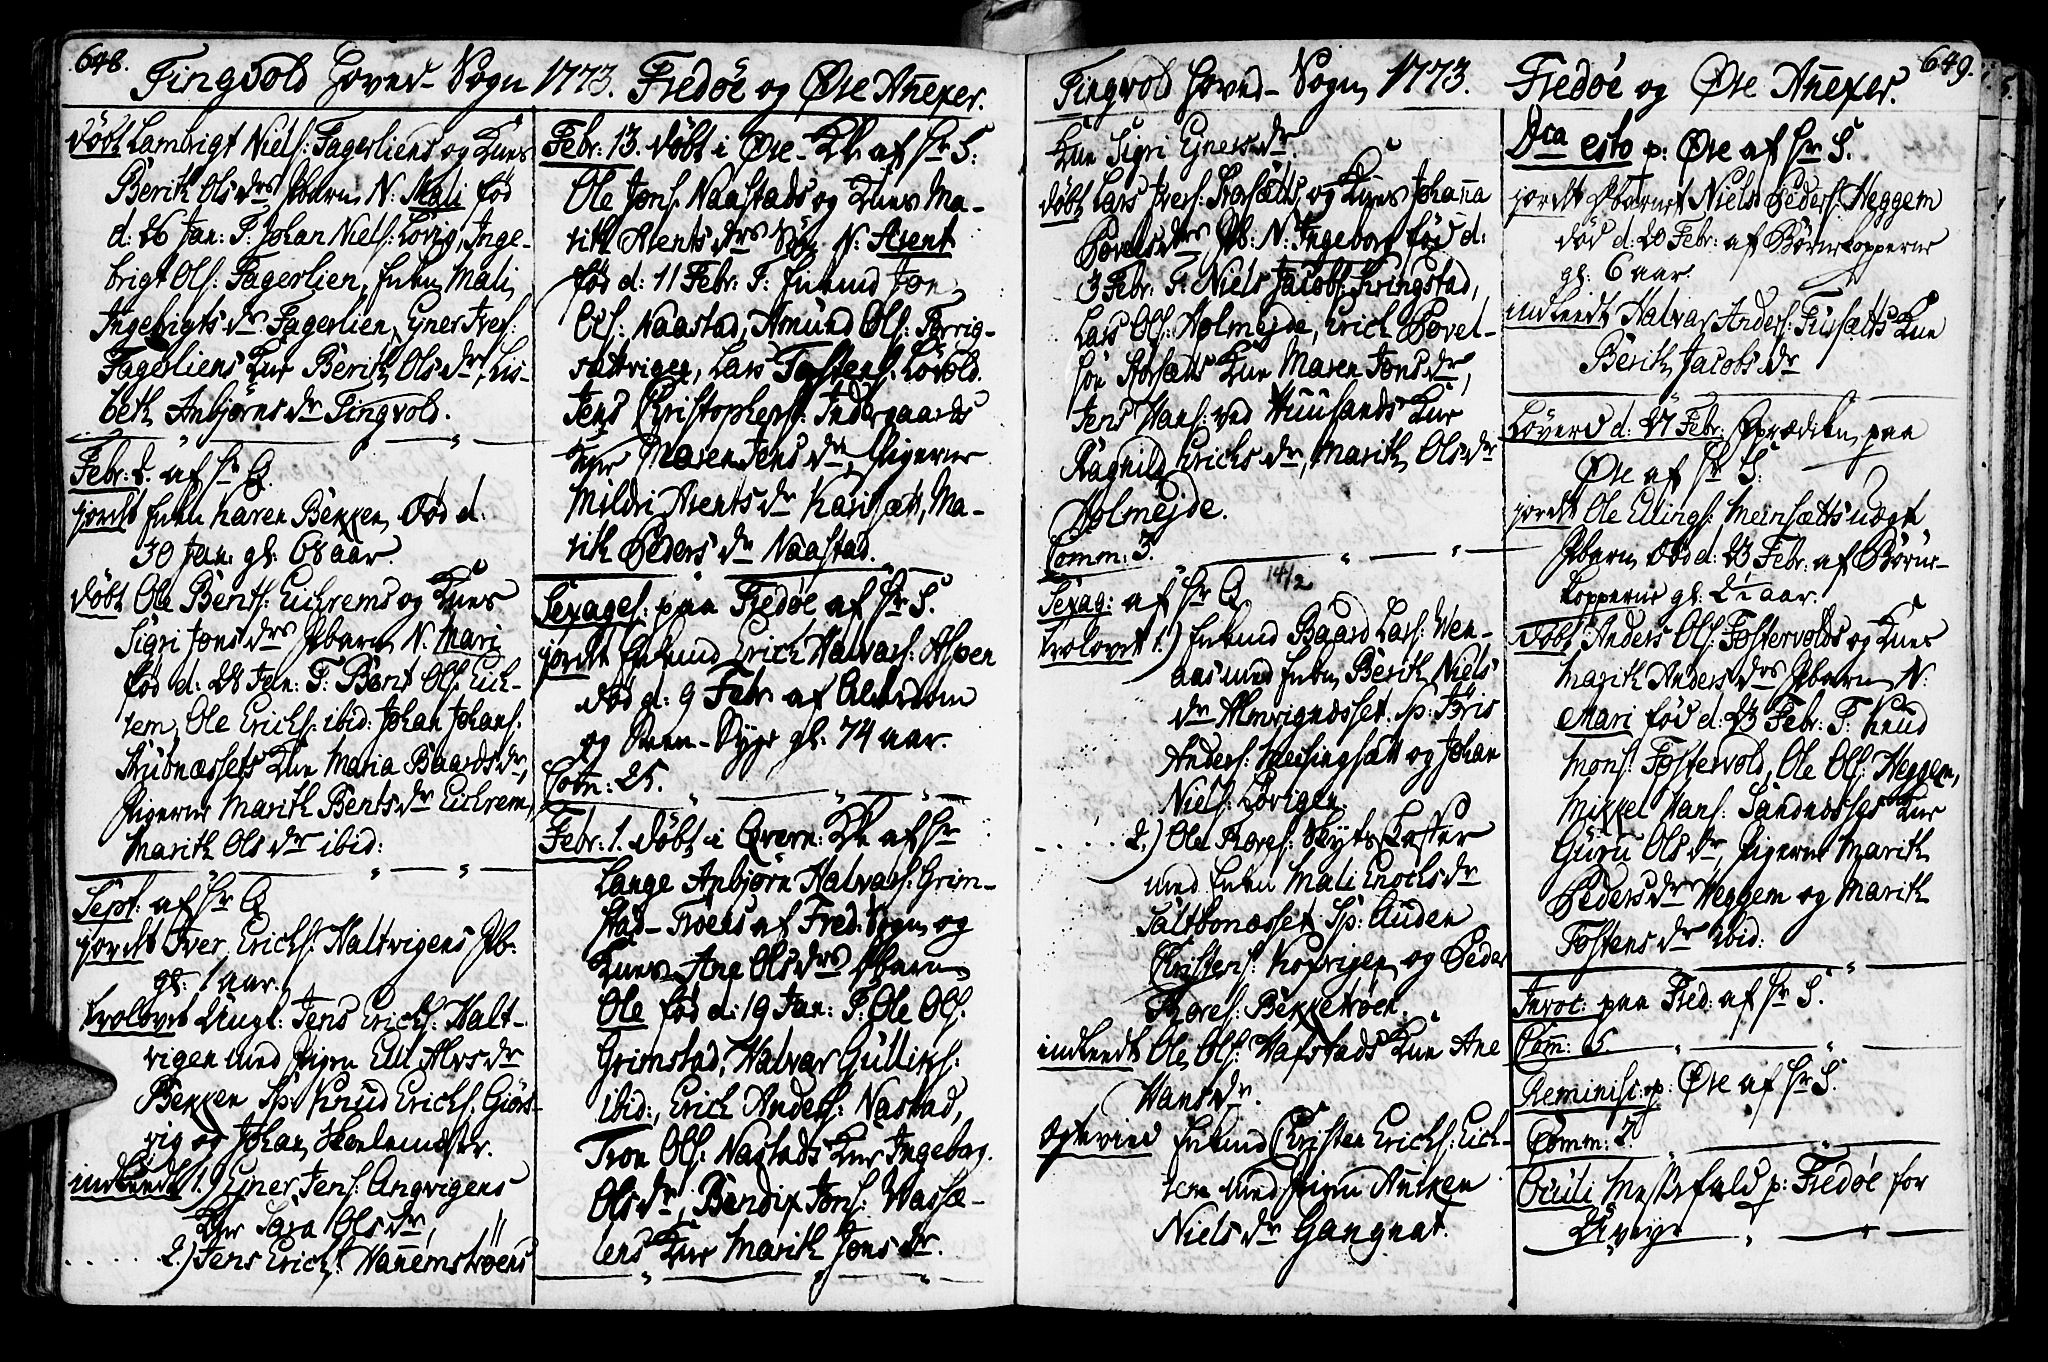 648.
Tingvold Hoved-Sogn 1773. Fredøe og Øre Añexer.
døbt Lambrigt Niels: Fagerliens og Kones
Berith Ols drs Pbarn N: Mali fød
d: 26 Jan: F: Johan Niels: Lovig, Inge-
brigt Ols: Fagerlien, Enken Mali
Ingebrigts dr Fagerlien, Eyner Ivers:
Fagerliens Kone Berith Ols dr, Lis-
beth Anbjørns dr Tingvold.
Febr: 2. af Hr Q.
jordet Enken Karen Bekken død d.
30 Jan: gl: 68 aar.
døbt Ole Bents: Eichrems og Kones
Sigri Jons drs Pbarn N. Mari
fød d: 28 Jan: F: Bent Ols: Eich-
rem, Ole Erichs: ibid: Johan Johans:
Strubnæssets Kone Maria Baards dr,
Pigerne Marith Bents dr Eichrem,
Marith Ols dr ibid:
Sept: af Hr Q
jordet Iver Erichs: Haltvigens Pb:
gl: 1 aar.
trolovet Ungk: Jens Erichs: Halt-
vigen med Pigen Elli Alvs dr
Bekken Sp: Knud Erichs: Giørs-
vig og Johan Skolemester.
indleedt 1.) Eyner Jens: Angvigens
Kone Sara Ols dr,
2.) Jens Erichs: Hañemstrøens
Febr: 13. døbt i Øre-Kk af Hr S:
Ole Jons: Naastads og Kones Ma-
rith Arents drs Søn N: Arent
fød d: 11 Febr: F: Enkemd Jon
Ols: Naastad, Amund Ols:
Lars Tostens: Løvold
Jens Christophers: Indergaards
Kone Maren Jens dr, Pigerne
Mildri Arents dr Karisætt, Ma-
rith Peders dr Naastad.
Sexages: paa Fredøe af Hr S.
jordet Enkemd Erich Halvars: Aspen
død d: 9 Febr af Alderdom
og Steen-Syge gl: 74 aar.
Com: 25.
Febr: 1. døbt i Qvern: Kk af Hr
Lange Anbjørn Halvars: Grim-
stad-Troens af Fred: Sogn og
Kones Ane Ols drs Pbarn
Ole fød d: 19 Jan: F: Ole Ols:
Grimstad, Halvar Gulliks:
ibid:, Erich Anders: Nastad,
Tron Ols: Nastads Kone Ingebor.
Ols dr, Bendix Jons: Vassæ-
lens Kone Marith Jons dr.
649.
Tingvold Hoved-Sogn 1773. Fredøe og Øre Añexer.
Kone Sigri Eyners dr.
døbt Lars Ivers: Storsætts og Kones Johaña
Povels drs Pb: N: Ingebor fød d:
3 Febr: F: Niels Jacobs: Kringstad,
Lars Ols: Holmejde, Erich Povel-
søn Storsætts Kone Maren Jons dr,
Jens Hans: ved Huusands Kone
Ragnild Erichs dr, Marith Ols dr
Holmejde.
Comm: 3.
14/2
Sexag: af Hr Q
trolovet 1.) Enkemd Baard Lars: Wen-
aas med Enken Berith Niels
dr Almvignæsset. Sp: Jöris
Anders: Meisingsætt og Johan
Niels: Lovigen.
2.) Ole Tores: Skyts Koster
med Enken Mali Enochs dr
Saltbonæsset Sp: Auden
Christens: Torvigen og Peder
Thores: Bekketrøen.
indleedt Ole Ols: Hafstads Kone Ane
Hans dr.
Egteviet Enkemd Christen Erichs: Eich-
rem med Pigen Aniken
Niels dr Gangnat.
Dca esto p: Øre af Hr S.
jordet Pbarnet Niels Peders: Heggem
død d: 20 Febr: af Børnekopperne
gl: 6 aar.
indleedt Halvar Anders: Fursætts Kone
Berith Jacobs dr
Løverd d: 27 Febr: Prædiken paa
Øre af Hr S.
jordet Ole Ellings: Meinsætts uægt
Pbarn død d: 23 Febr: af Børne-
kopperne gl: 2½ aar.
døbt Anders Ols: Fostervolds og Kones
Marith Anders drs Pbarn N:
Mari fød d: 23 Febr: F: Knud
Mons: Fostervold, Ole Ols: Heggem,
Mikkel Hans: Sandnæsses Kone
Guru Ols dr, Pigerne Marith
Peders dr Heggem og Marith
Tostens dr ibid:
Invoc: paa Fred: af Hr S.
Com: 5.
Reminisc: p: Øre af Hr S.
Comm: 7.
Oculi Messefald p: Fredøe for
Uveyr